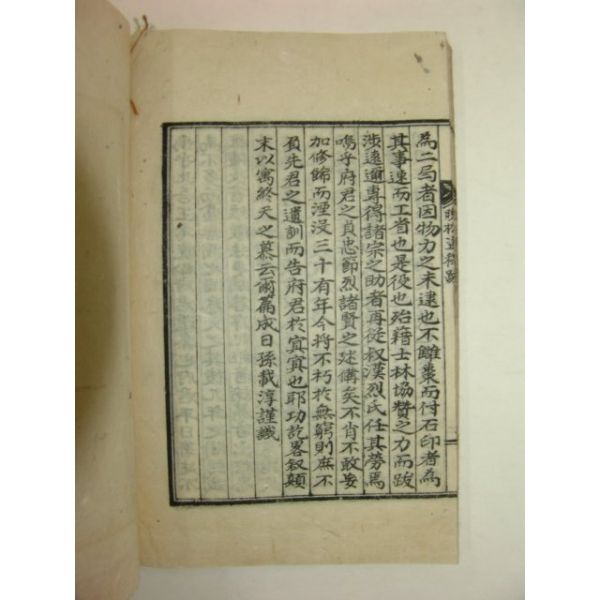 為二局者因物力之未逮也不雠棗而付石印者為
其事速而工省也是役也殆籍士林協贊之力而跋
涉遠邇專得諸宗之助者再從叔漢烈氏任其勞焉
嗚乎府君之貞忠節烈諸賢之述備矣不肖不敢妄
加修飾而湮沒三十有年今將不朽於無窮則庶不
負先君之遺訓而告府君於冥冥也耶功訖畧叙顛
末以寓終天之慕云爾篇成日孫載淳謹識
晚松遺稿跋